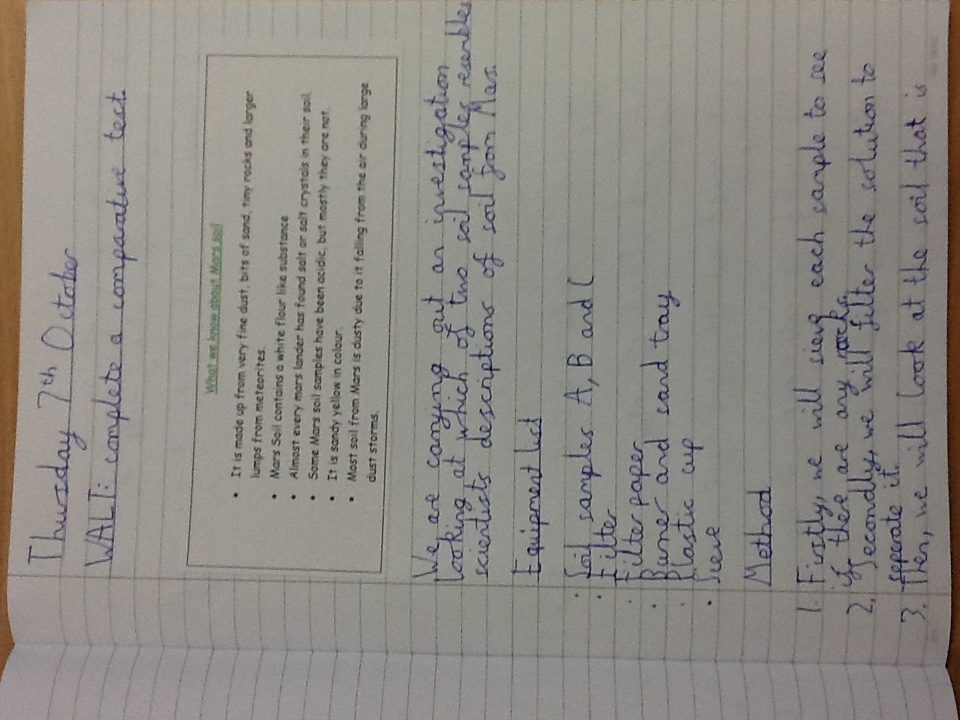 Thursday 7th October
WALT: complete a comparative test
What we know about Mars soil
• It is made up from very fine dust, bits of sand, tiny rocks and larger
lumps from meteorites.
• Mars Soil contains a white flour like substance
• Almost every mars lander has found salt or salt crystals in their soil.
• Some Mars soil samples have been acidic, but mostly they are not.
• It is sandy yellow in colour.
• Most soil from Mars is dusty due to it falling from the air during large
dust storms.
We are carrying out an investigation
looking at which of two soil samples resembles
scientists descriptions of soil from Mars.
Equipment list
• Soil samples A, B and C
• Filter
• Filter paper
• Burner and sand tray
• Plastic cup
• Sieve
Method
1. Firstly, we will sieve each sample to see
if there are any rocks.
2. Secondly, we will filter the solution to
seperate it.
3. Then, we will look at the soil that is